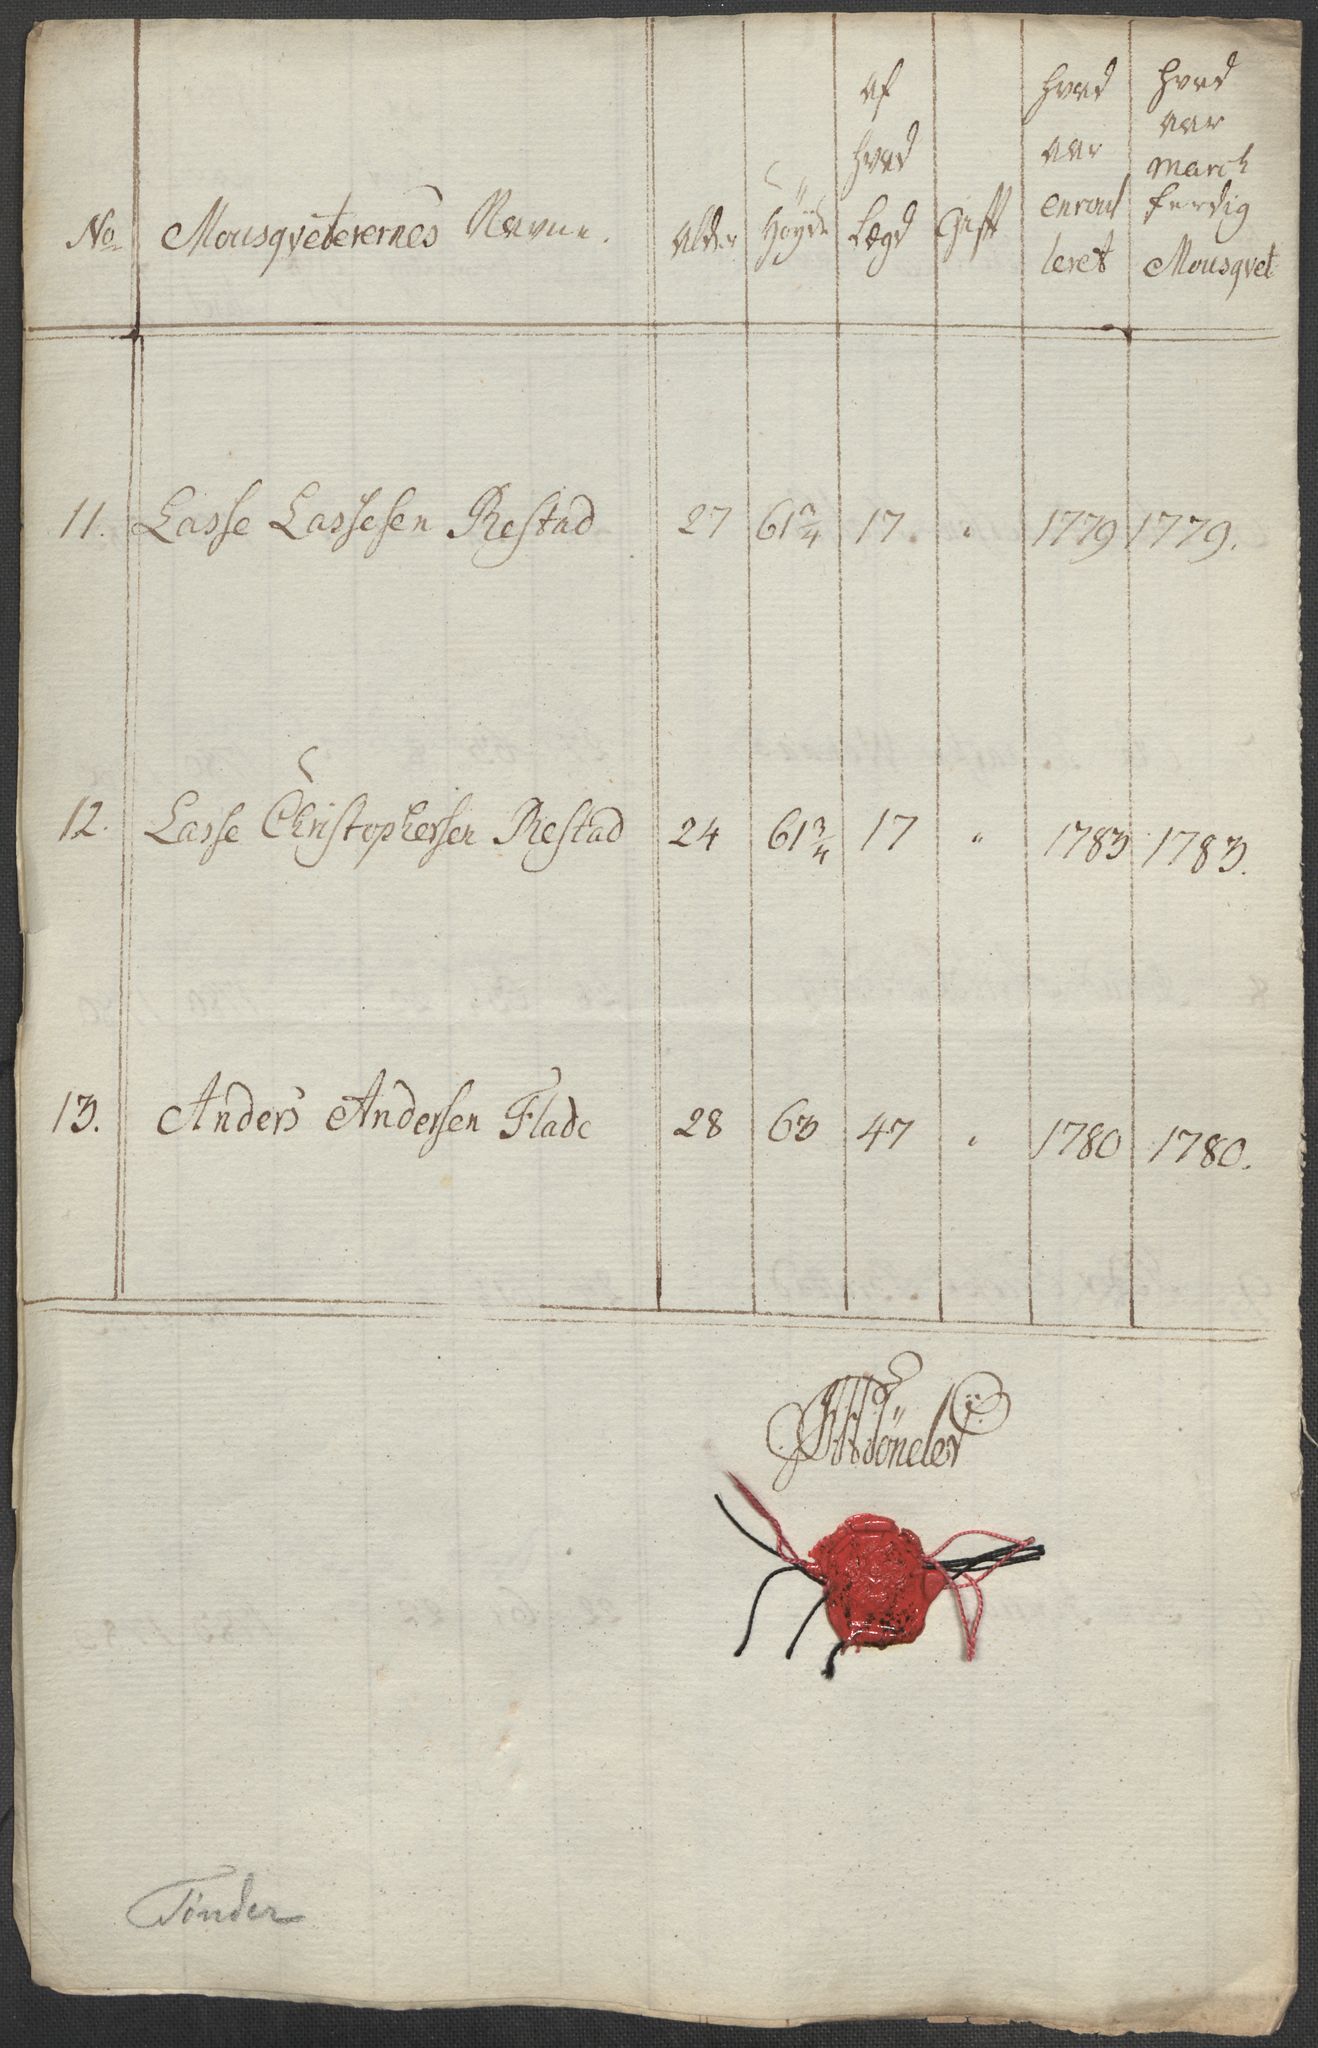 No Mousqveterernes Navne. Alder Höyde af hvad Lægd Gift hvad aar enroul leret hvad aar march ferdig Mousqvet
11. Lasse Lassesen Restad 27 61 3/4 17 " 1779 1779.
12. Lasse Christophersen Restad 24 61 3/4 17 " 1783 1783.
13. Anders Andersen Flade 28 63 47 " 1780 1780.
Tönder